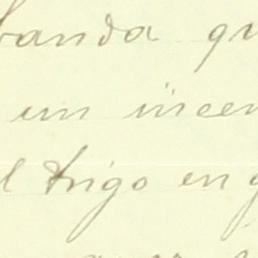 banda qu
un incen
l trigo en g